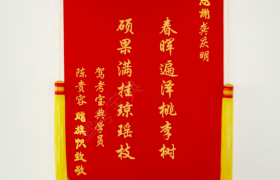 感谢龚庆明
春晖遍泽桃李树
硕果满挂琼瑶枝
驾考宝典学员
陈贵容 赠旗帜致敬